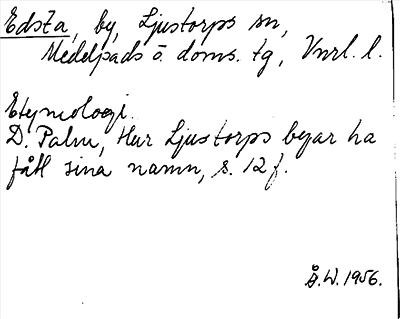 Edsta, by, Ljustorps sn,
Medelpads ö. doms. tg, Vnrl. l.
Etymologi.
D. Palm, Hur Ljustorps byar ha
fått sina namn, s. 12 f.
Å.W. 1956.